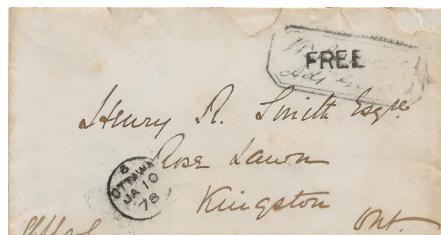 FREE
Henry R. Smith Esqre
Rose Lawn
Kingston
Ont.
8
OTTAWA
JA 10
78